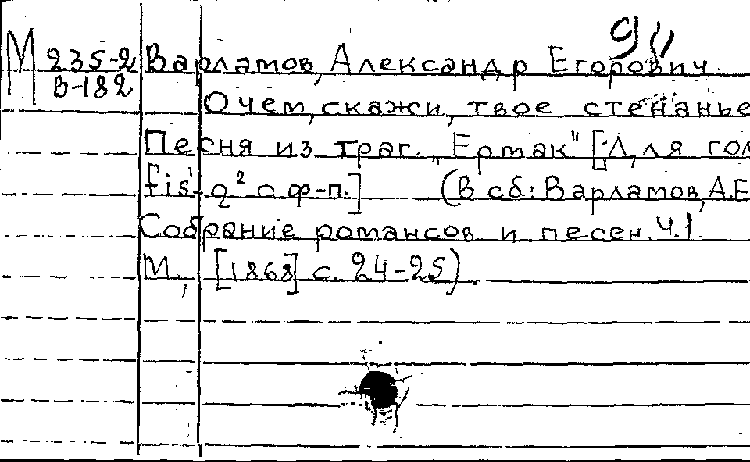 90
М 235-2 Варламов, Александр Егорович.
В-182
О чем, скажи, твое стенанье
Песня из траг. "Ермак" [Для гол
fis¹-g² с ф-п.] (В сб: Варламов, А.Е
Собрание романсов и песен. Ч.1.
М., [1868] с. 24-25)